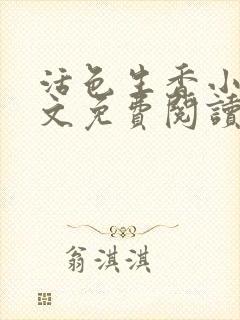 活色生香小
文免費閱讀
翁淇淇